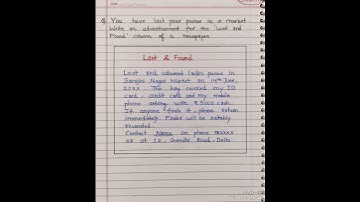 Q. You have lost your purse in a market
Write an advertisement for the 'Lost and
Found' column of a newspaper
Lost & Found
Lost red coloured ladies purse in
Sarojini Nagar Market on 14th June,
20XX. The bag carried my ID
card, credit card and my mobile
phone along with ₹5000 cash.
If anyone finds it, please return
immediately. Finder will be suitably
rewarded.
Contact Name on phone
or at 12, Road, Delhi